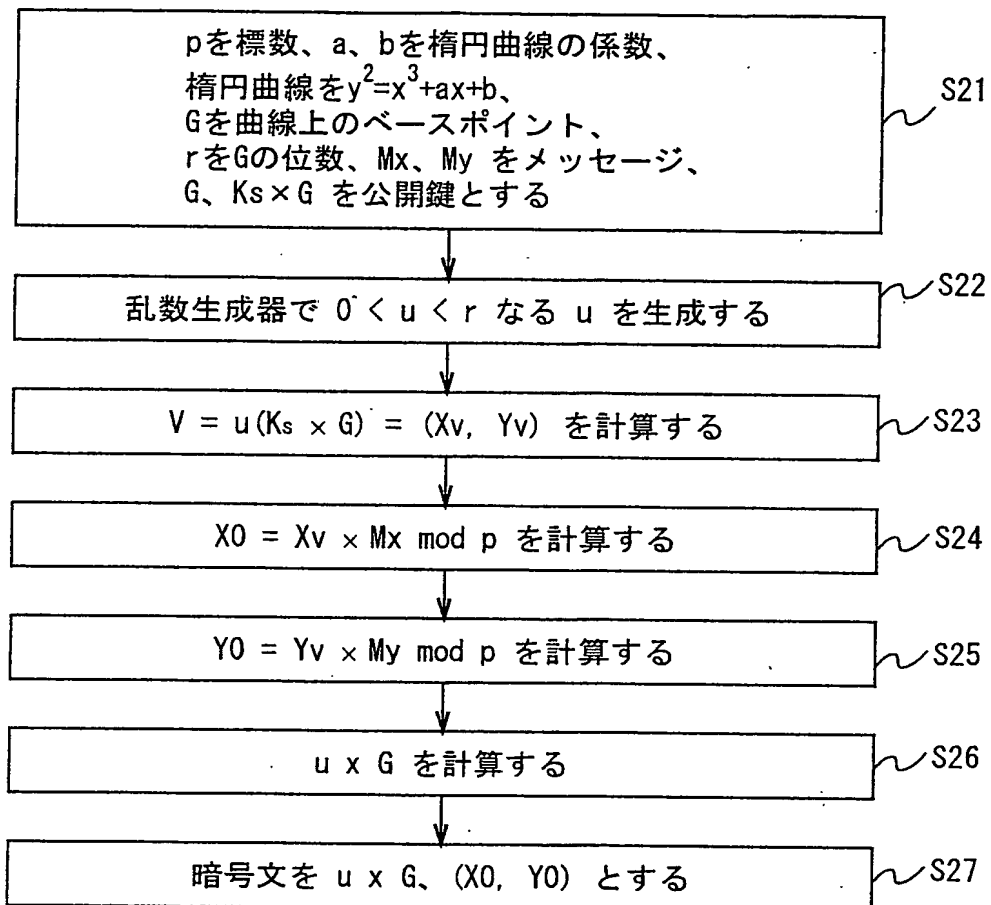 pを標数、a、bを楕円曲線の係数、
楕円曲線をy²=x³+ax+b、
Gを曲線上のベースポイント、
rをGの位数、Mx、My をメッセージ、
G、Ks×G を公開鍵とする
S21
乱数生成器で 0 < u < r なる u を生成する
S22
V = u(Ks × G) = (Xv, Yv) を計算する
S23
X0 = Xv × Mx mod p を計算する
S24
Y0 = Yv × My mod p を計算する
S25
u x G を計算する
S26
暗号文を u x G、(X0, Y0) とする
S27